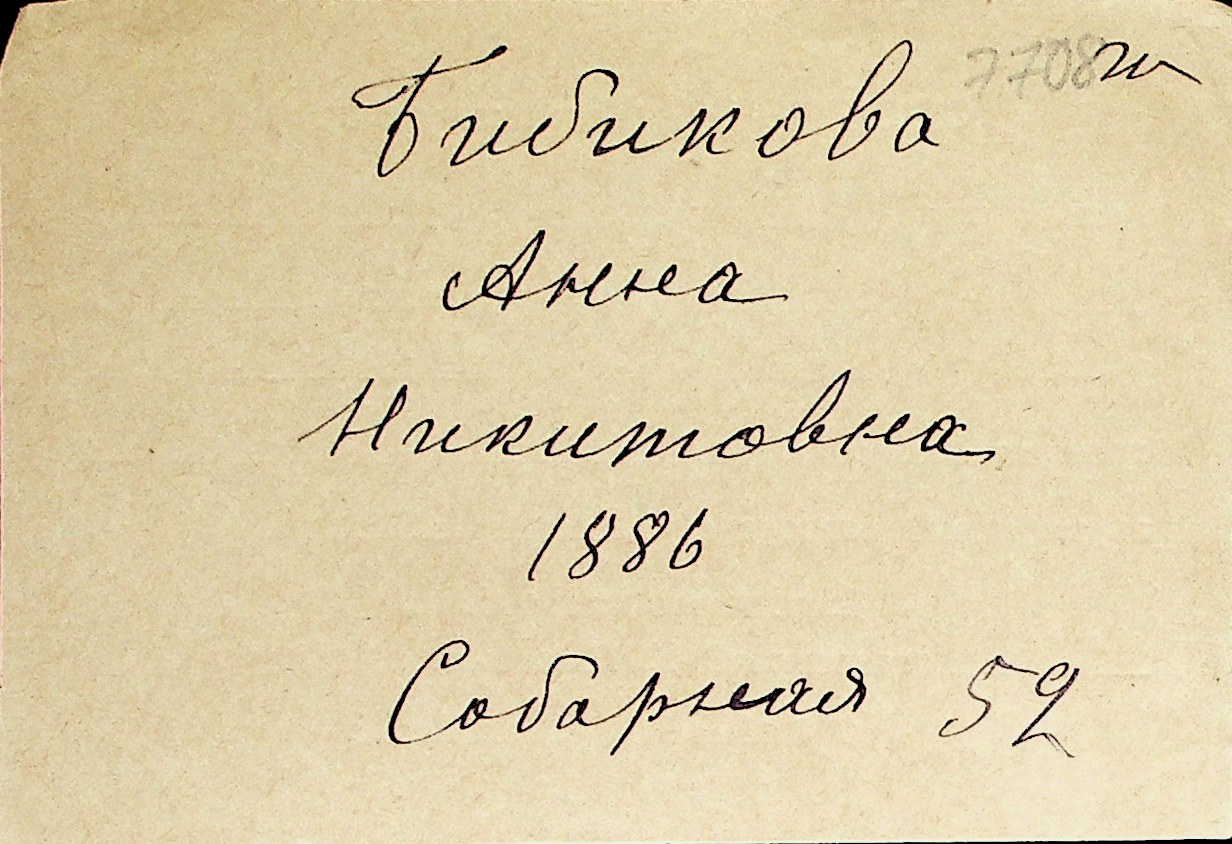 7708
Бибикова
Анна
Никитовна
1886
Собарная 52